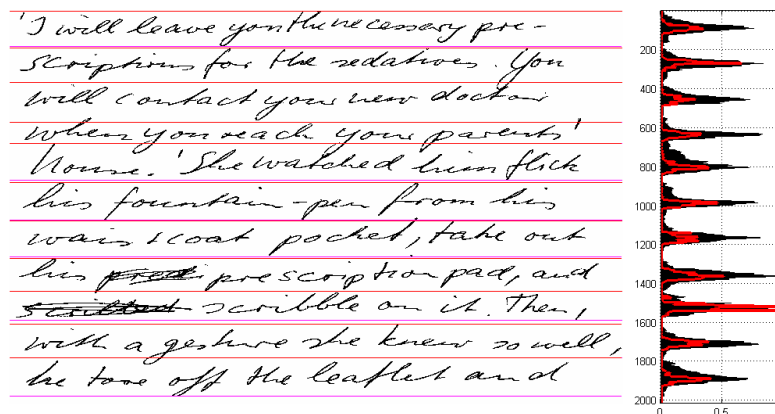 'I will leave you the necessary pre-
scriptions for the sedatives. You
will contact your new doctor
when you reach your parents'
house.' She watched him flick
his fountain-pen from his
waistcoat pocket, take out
his prescription pad, and
scribble on it. Then,
with a gesture she knew so well,
he tore off the leaflet and
200
400
600
800
1000
1200
1400
1600
1800
2000
0 0.5